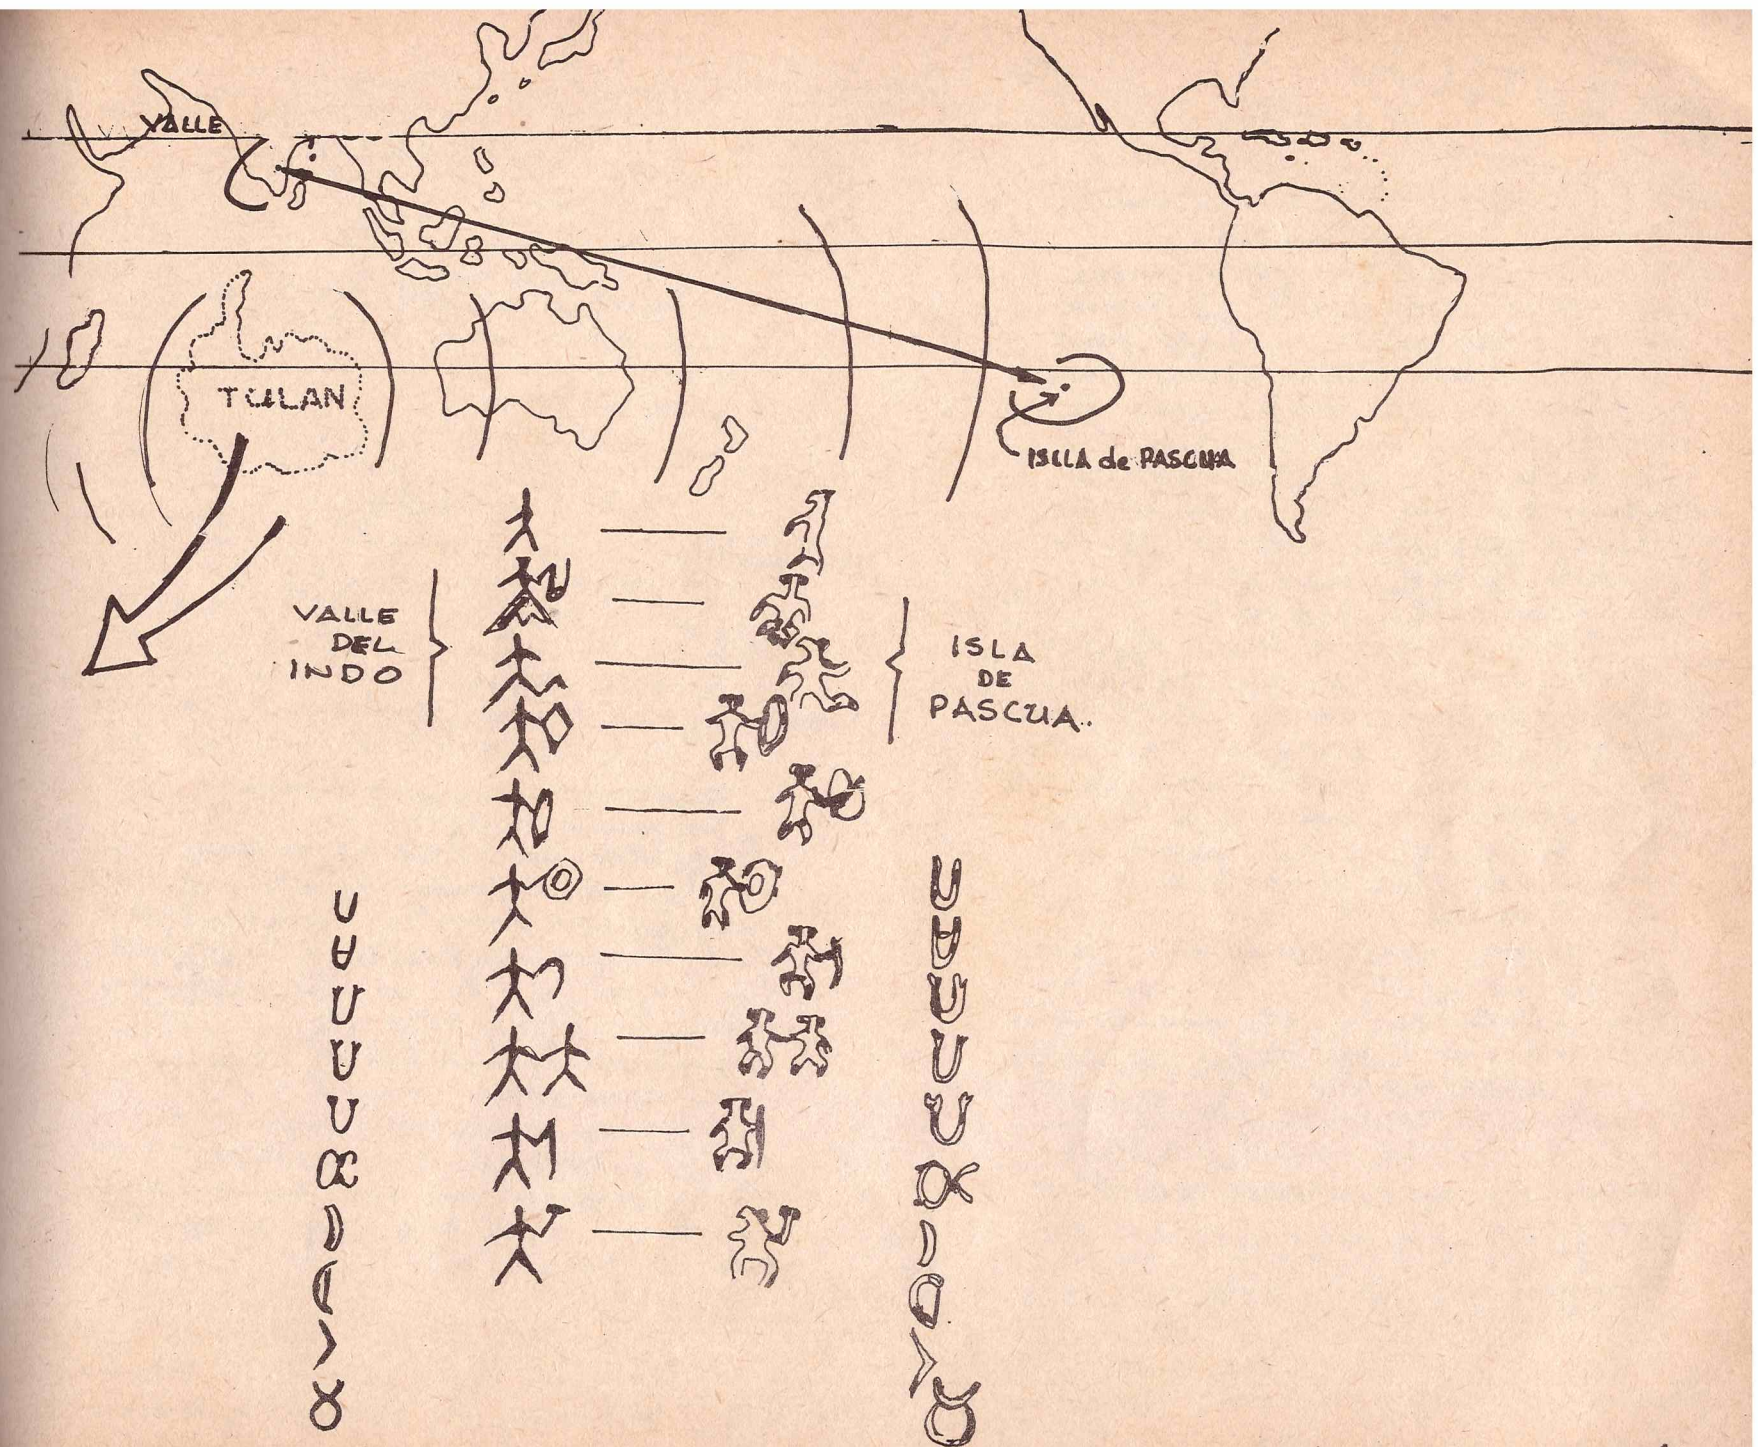 VALLE
TULAN
ISLLA de PASCUA
VALLE
DEL
INDO
ISLA
DE
PASCUA..